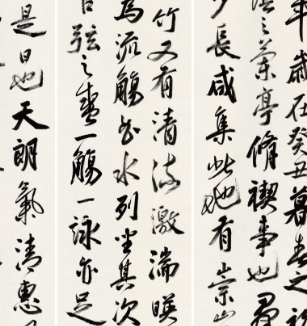 年歲在癸丑暮春之
之蘭亭脩禊事也羣
少長咸集此地有崇山
竹又有清流激湍暎
為流觴曲水列坐其次
弦之盛一觴一詠亦足
是日也天朗氣清惠